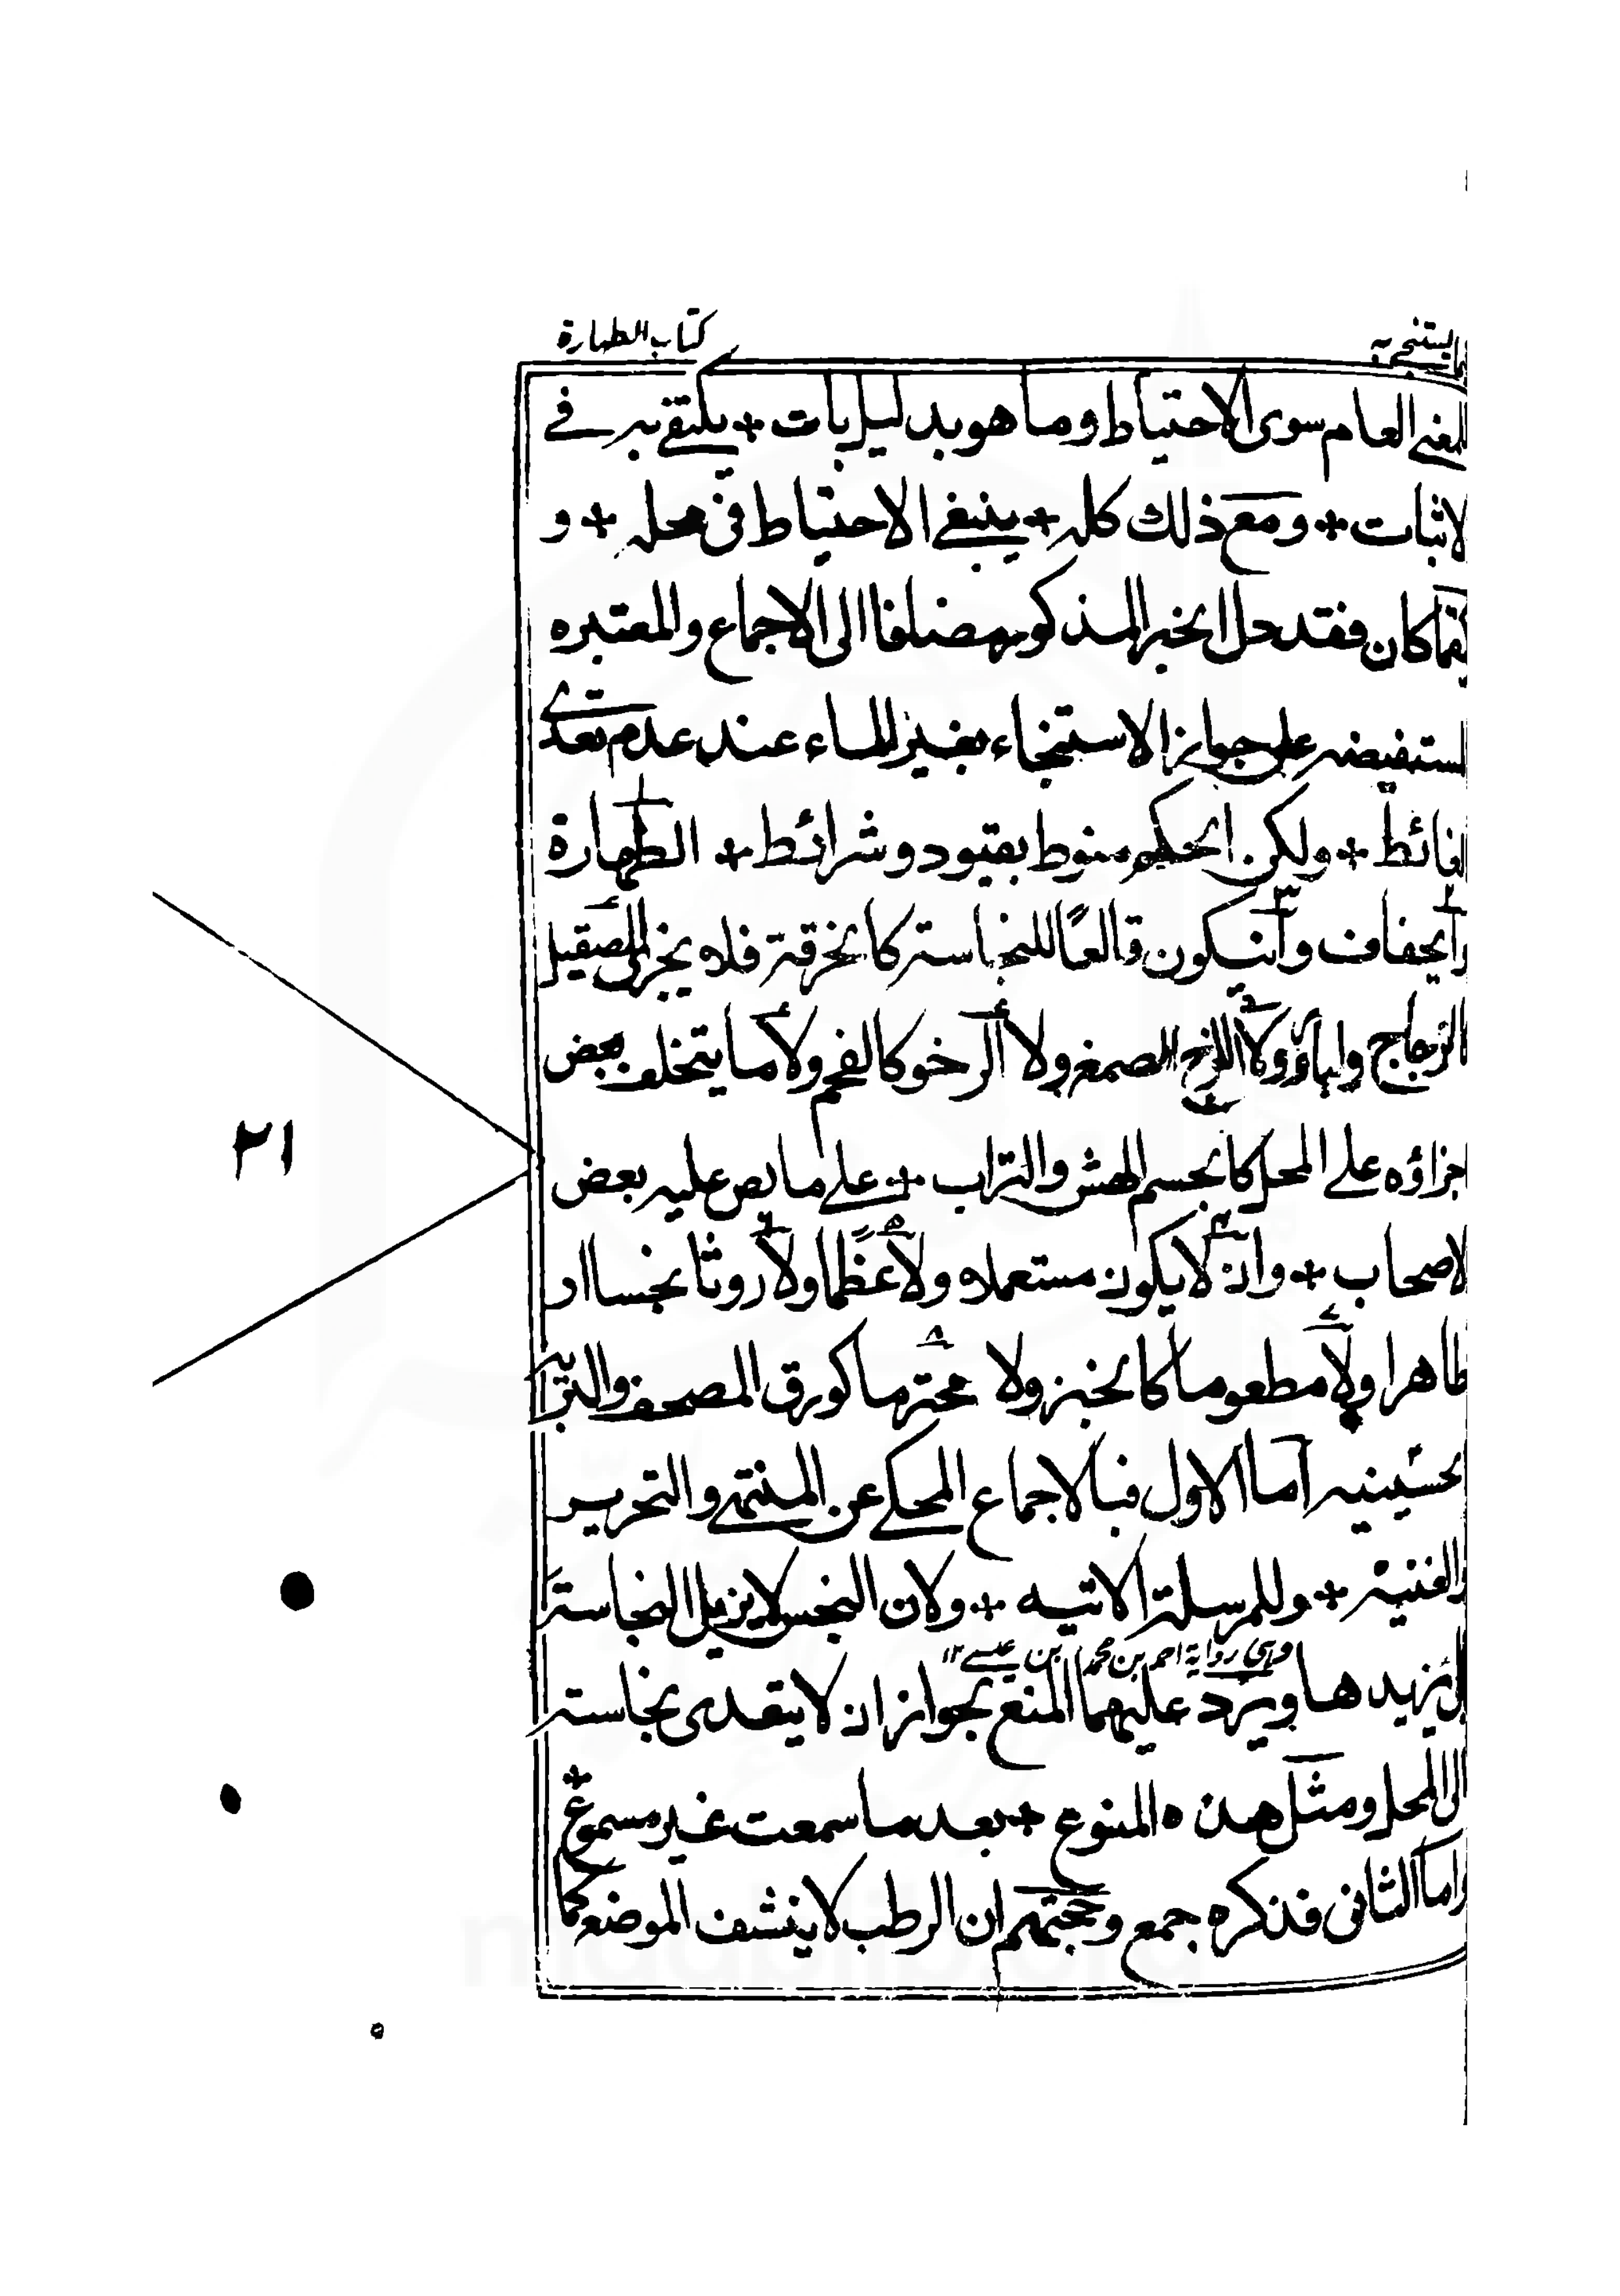 ما يستنجى به
كتاب الطهارة
المغنى العام سوى الاحتياط وما هو بدليل بات + يكتفى به فى
لاثبات + ومع ذلك كله + ينبغى الاحتياط فى محله + و
كان فقد دل الخبر المذكور مضافا الى الاجماع والمعتبره
لمستفيضه على جواز الاستنجاء بغير الماء عند عدم تعدى
الغائط + ولكن الحكم منوط بقيود وشرائط + الطهارة
والجفاف وان يكون قالعًا للنجاسة كالخرقة فلا يجزى الصيقل
كالزجاج ولا اللزج الصمغ ولا الرخو كالفحم ولا ما يتخلف بعض
اجزاؤه على المحل كالجسم الهش والتراب + على ما نص عليه بعض
لاصحاب + وان لا يكون مستعملا ولا عظما ولا روثا نجسا او
طاهرا ولا مطعوما كالخبز ولا محترما كورق المصحف والتربة
لحسينيه اما الاول فبالاجماع المحكى عن المنتهى والتحرير
والغنية + وللمرسلة الاتيه + ولان النجس لا يزيل النجاسة
وهى رواية احمد بن محمد بن عيسى ١٢
بل يزيدها ويرد عليهما المنع بجواز ان لا يتعدى نجاسته
الى المحل ومثل هذه المنوع + بعد ما سمعت غير مسموع +
واما الثانى فذكره جمع وحجتهم ان الرطب لا ينشف الموضع كما
٢١